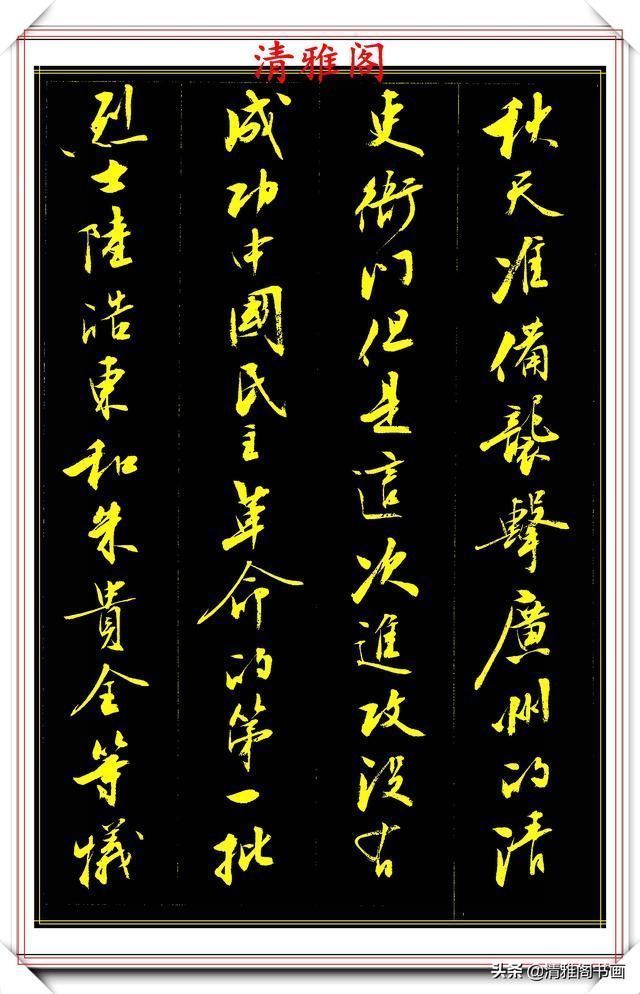 清雅阁
秋天准備襲擊廣州的清
吏衙门但是這次進攻没有
成功中國民主革命的第一批
烈士陸浩東和朱貴全等犧
头条@清雅阁书画